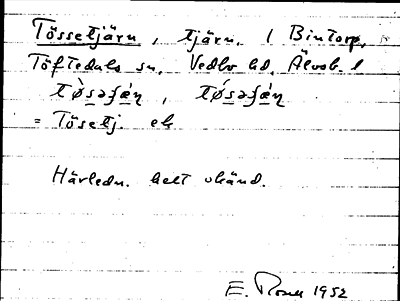 Tössetjärn, tjärn. I Bintorp,
Töftedals sn, Vedbo hd, Älvsb. l
tö̀səʃæ̀n, tö́səʃæ̀n
= Tösetj. ek
Härledn. helt okänd.
E. Rosell 1952